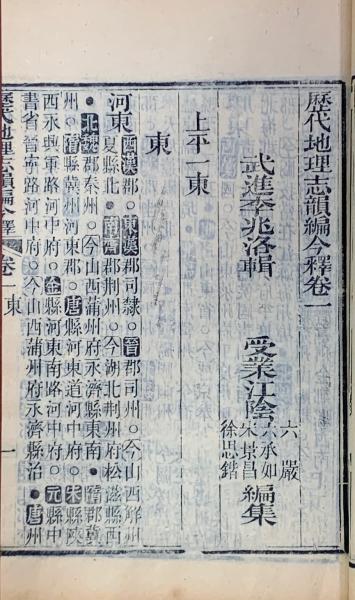 歷代地理志韻編今釋卷一
武進李兆洛輯
受業江陰
六嚴
六承如
宋景昌
徐思鍇
編集
上平一東
東
河東西漢郡○東漢郡司隸○晉郡司州○今山西解州
夏縣北●南齊郡荊州○今湖北荊州府松滋縣西
●北魏郡秦州○今山西蒲州府永濟縣東南●隋郡冀
州○隋縣冀州河東郡○唐縣河東道河中府○宋縣陝
西永興軍路河中府○金縣河東南路河中府○元縣中
書省晉寧路河中府○今山西蒲州府永濟縣治●唐州
歷代地理志韻編今釋 卷一東
一